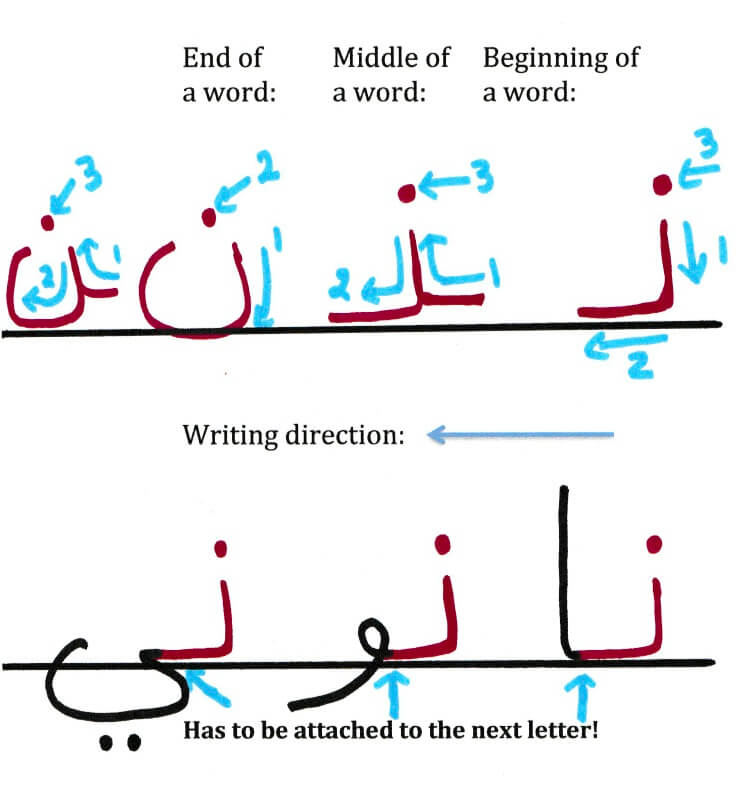 End of
a word:
Middle of
a word:
Beginning of
a word:
نـ 3 1 2
ـنـ 3 1 2
ن 2 1
ـن 3 1 2
Writing direction:
نا نو ني
Has to be attached to the next letter!